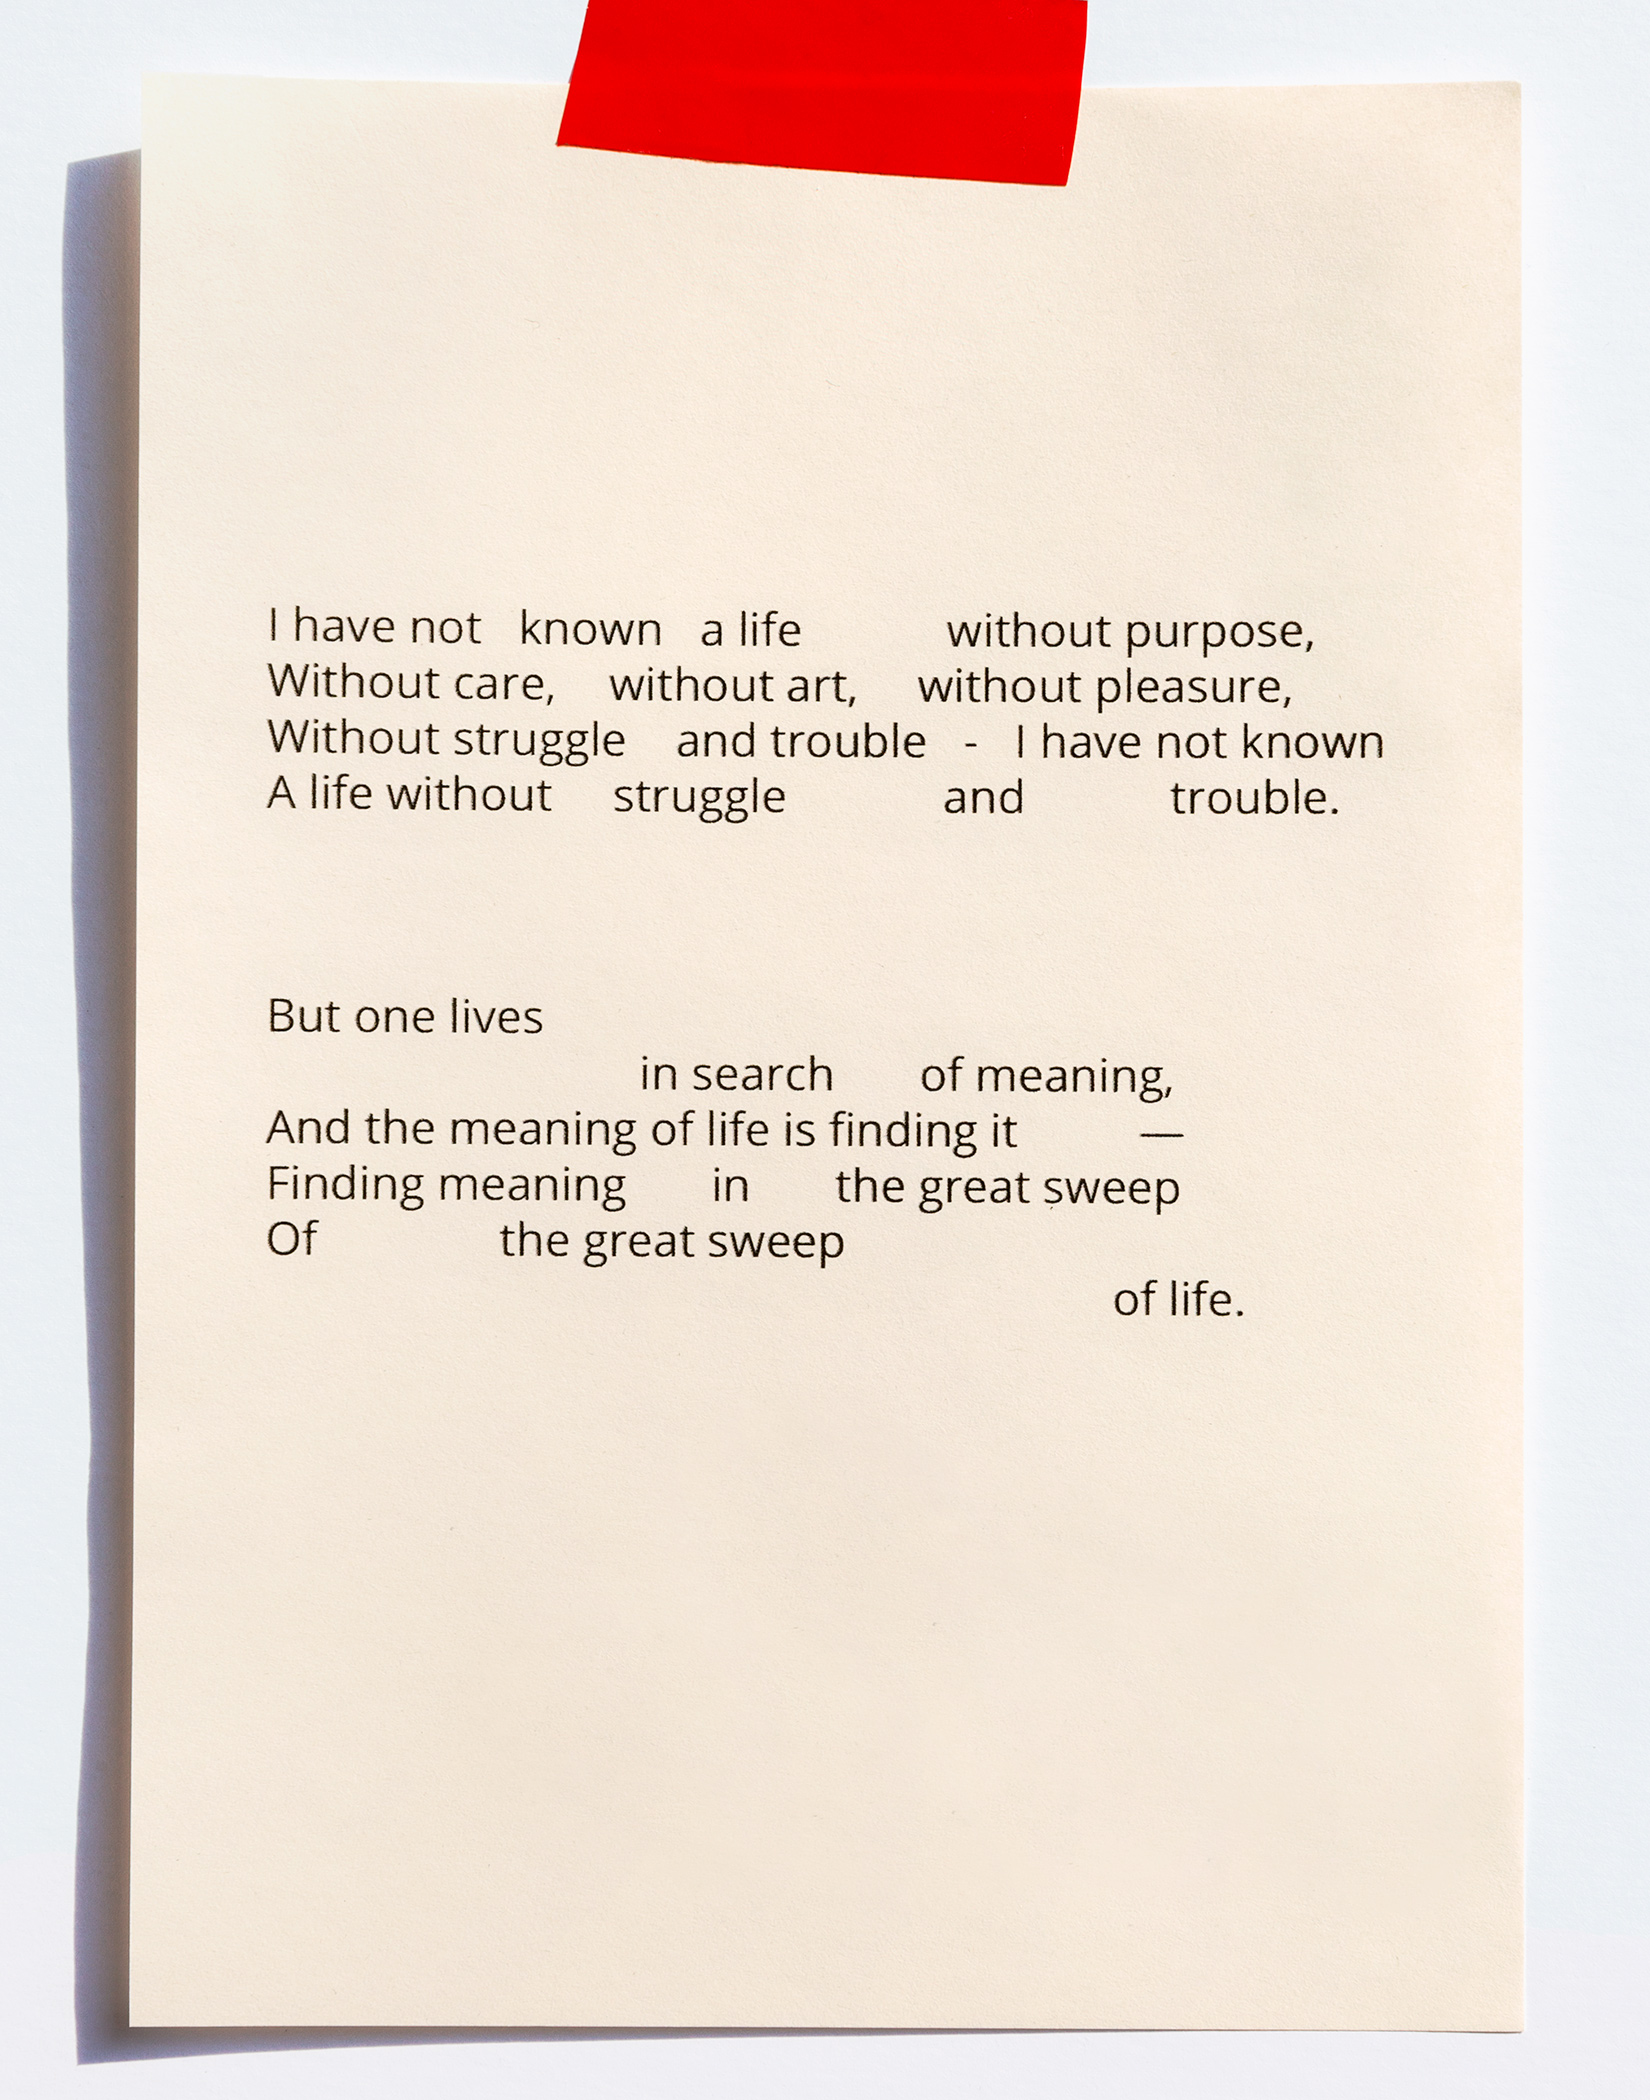 I have not   known   a life            without purpose,
Without care,    without art,     without pleasure,
Without struggle    and trouble   -   I have not known
A life without     struggle             and            trouble.
But one lives
                               in search       of meaning,
And the meaning of life is finding it          —
Finding meaning       in       the great sweep
Of               the great sweep
                                                                      of life.